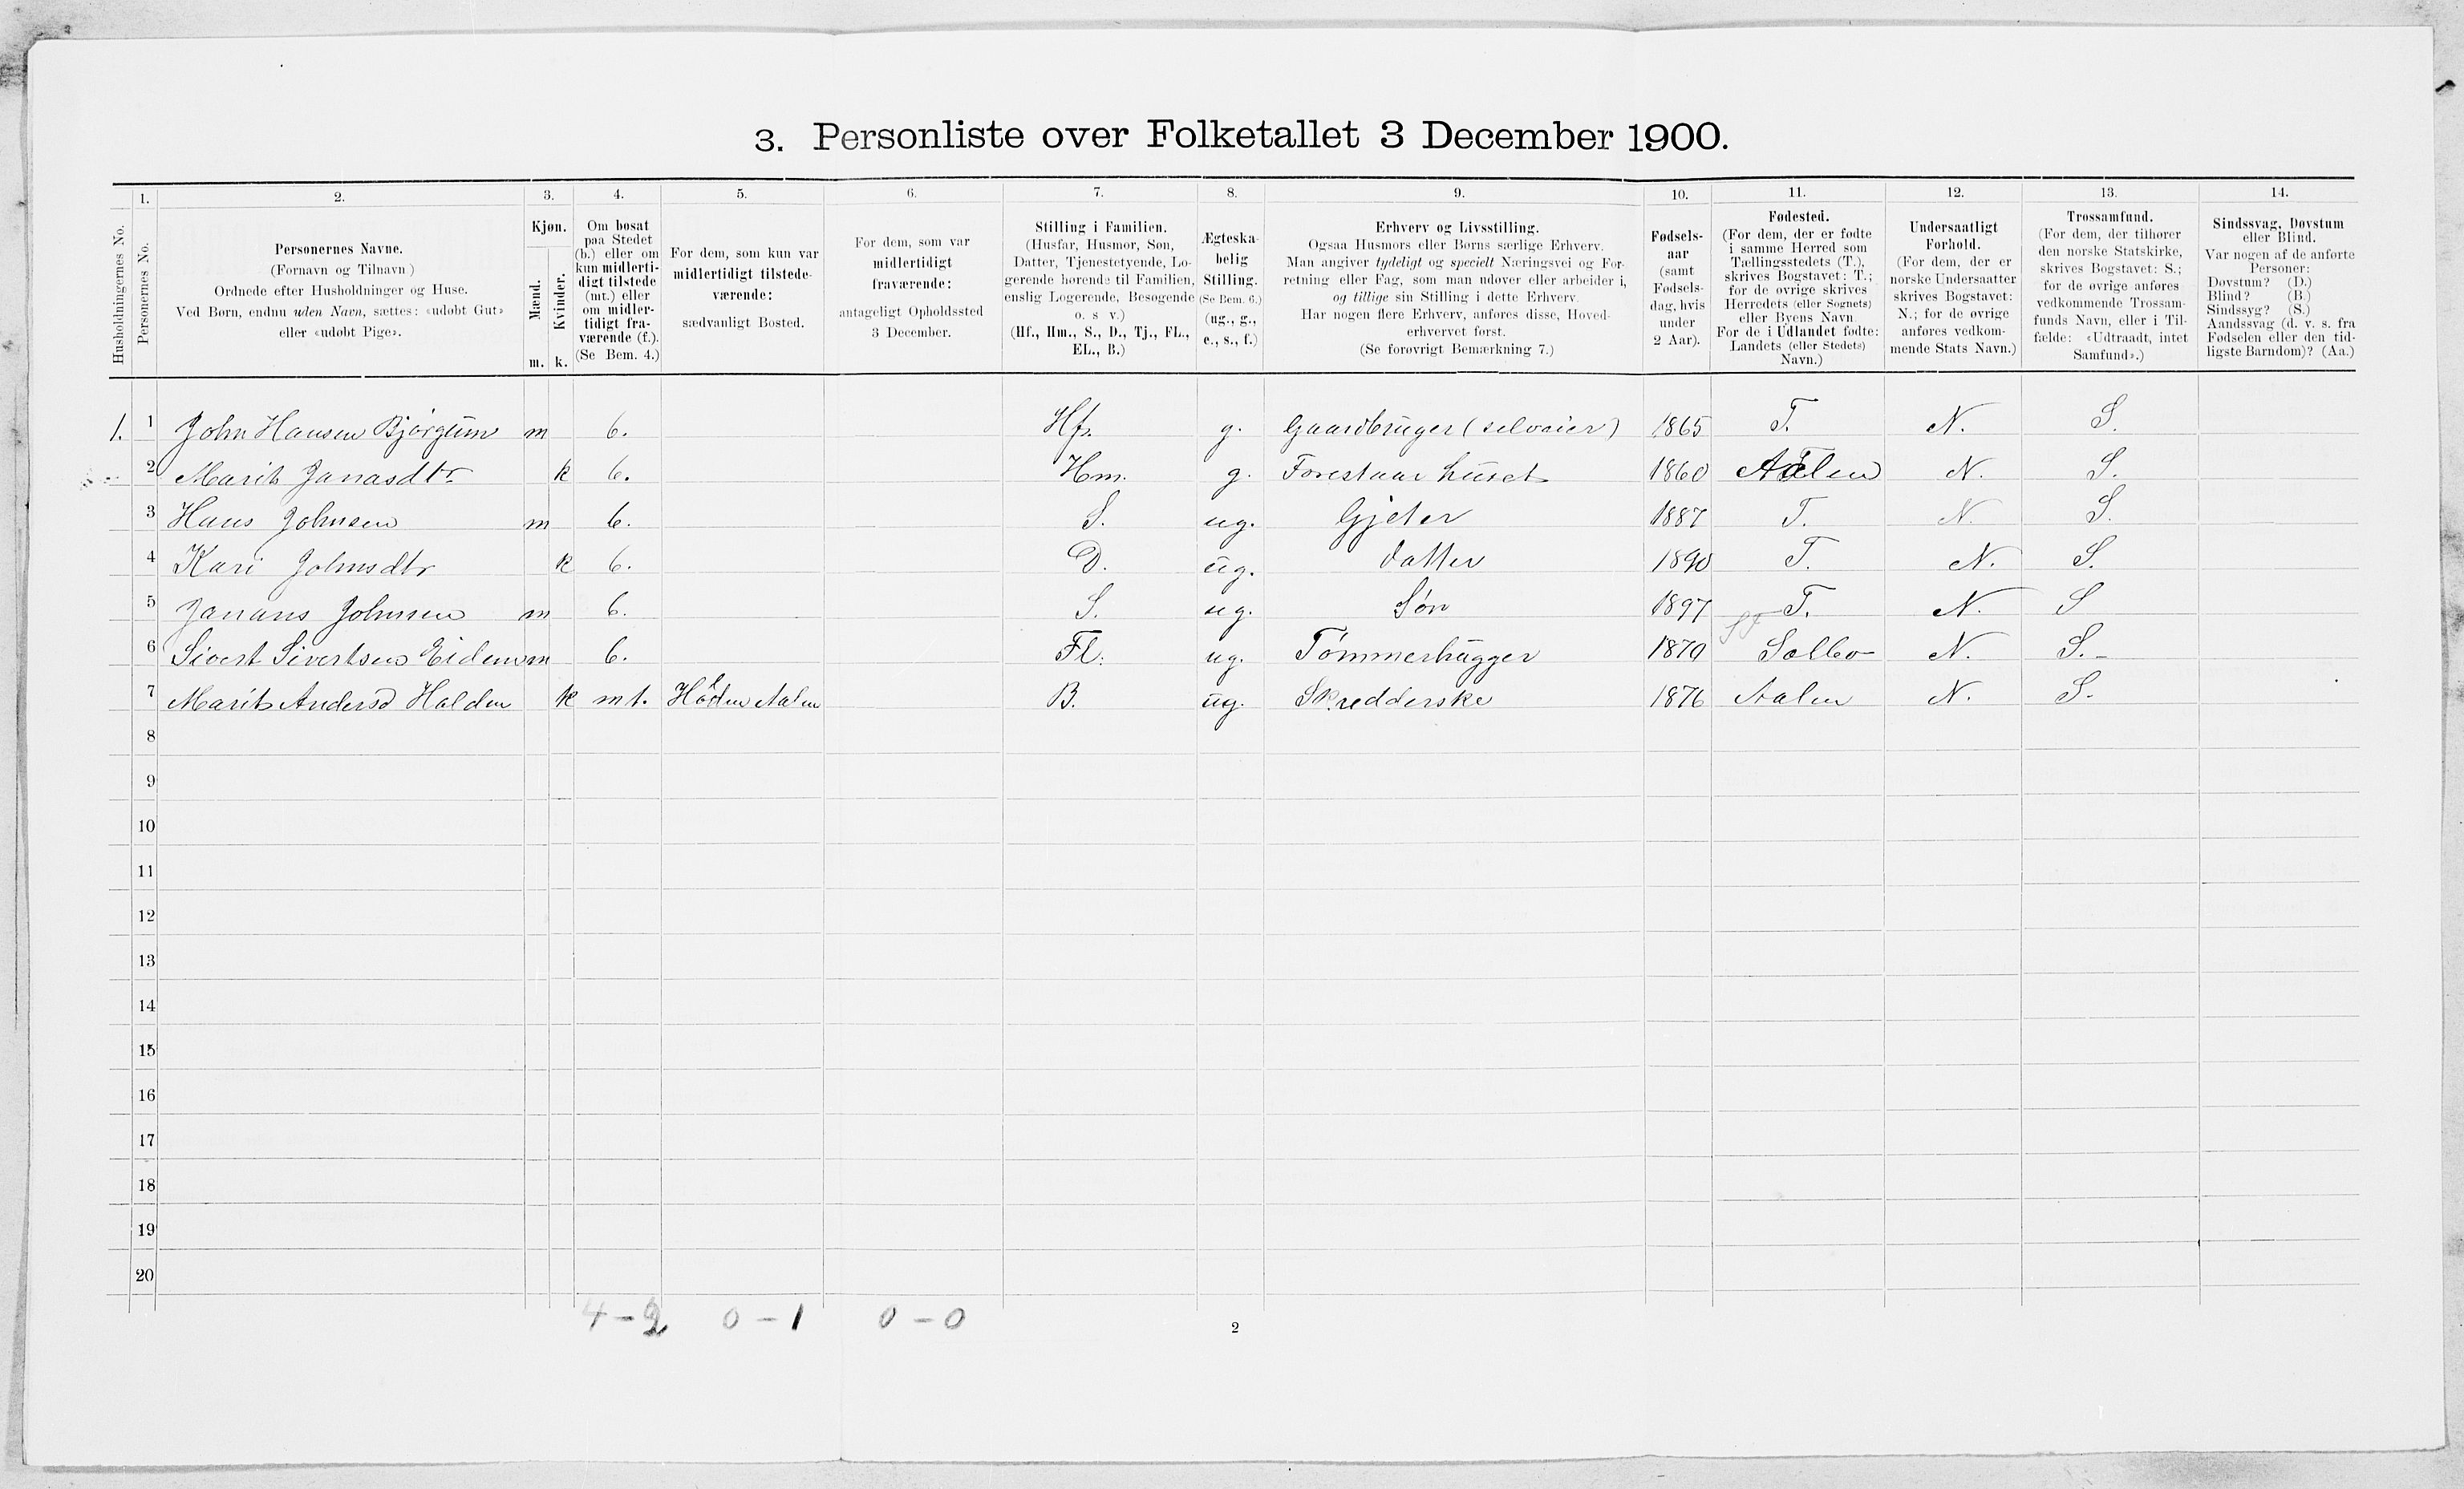 3. Personliste over Folketallet 3 December 1900.
Husholdningernes No.
1.
Personernes No.
2.
Personernes Navne.
(Fornavn og Tilnavn)
Ordnede efter Husholdninger og Huse.
Ved Børn, endnu uden Navn, sættes: «udøbt Gut»
eller «udøbt Pige».
3.
Kjøn.
Mænd.
Kvinder.
m. k.
4.
Om bosat
paa Stedet
(b.) eller om
kun midlerti-
digt tilstede
(mt.) eller
om midler-
tidigt fra-
værende (f.).
(Se Bem. 4.)
5.
For dem, som kun var
midlertidigt tilstede-
værende:
sædvanligt Bosted.
6.
For dem, som var
midlertidigt
fraværende:
antageligt Opholdssted
3 December.
7.
Stilling i Familien.
(Husfar, Husmor, Søn,
Datter, Tjenestetyende, Lo-
gerende hørende til Familien,
enslig Logerende, Besøgende
o. s. v.)
(Hf., Hm., S., D., Tj., FL.,
EL., B.)
8.
Ægteska-
belig
Stilling.
(Se Bem. 6.)
(ug., g.,
e., s., f.)
9.
Erhverv og Livsstilling.
Ogsaa Husmors eller Børns særlige Erhverv.
Man angiver tydeligt og specielt Næringsvei og For-
retning eller Fag, som man udøver eller arbeider i,
og tillige sin Stilling i dette Erhverv.
Har nogen flere Erhverv, anføres disse, Hoved-
erhvervet først.
(Se forøvrigt Bemærkning 7.)
10.
Fødsels-
aar
(samt
Fødsels-
dag, hvis
under
2 Aar).
11.
Fødested.
(For dem, der er fødte
i samme Herred som
Tællingsstedets (T.),
skrives Bogstavet: T.;
for de øvrige skrives
Herredets (eller Sognets)
eller Byens Navn.
For de i Udlandet fødte:
Landets (eller Stedets)
Navn.)
12.
Undersaatligt
Forhold.
(For dem, der er
norske Undersaatter
skrives Bogstavet:
N.; for de øvrige
anføres vedkom-
mende Stats Navn.)
13.
Trossamfund.
(For dem, der tilhører
den norske Statskirke,
skrives Bogstavet: S.;
for de øvrige anføres
vedkommende Trossam-
funds Navn, eller i Til-
fælde: «Udtraadt, intet
Samfund».)
14.
Sindssvag, Døvstum
eller Blind.
Var nogen af de anførte
Personer:
Døvstum? (D.)
Blind? (B.)
Sindssyg? (S.)
Aandssvag (d. v. s. fra
Fødselen eller den tid-
ligste Barndom)? (Aa.)
1. 1 John Hansen Bjørgum m b. Hf. g. Gaardbruger (selveier) 1865 T. N. S.
2 Marit Janasdtr. k b. Hm. g. Forestaar huset 1860 Aalen N. S.
3 Hans Johnsen m b. S. ug. Gjeter 1887 T. N. S.
4 Kari Johnsdtr k b. D. ug. datter 1890 T. N. S.
5 Janans Johnsen m b. S. ug. Søn 1897 T. N. S
6 Sivert Sivertsen Eidem m b. Fl. ug. Tømmerhugger 1870 Selbo N. S.
7 Marit Andersd Holden k mt. Holden Aalen B. ug. Skredderske 1876 Aalen N. S.
8
9
10
11
12
13
14
15
16
17
18
19
20
4 - 2 0 - 1 0 - 0
2